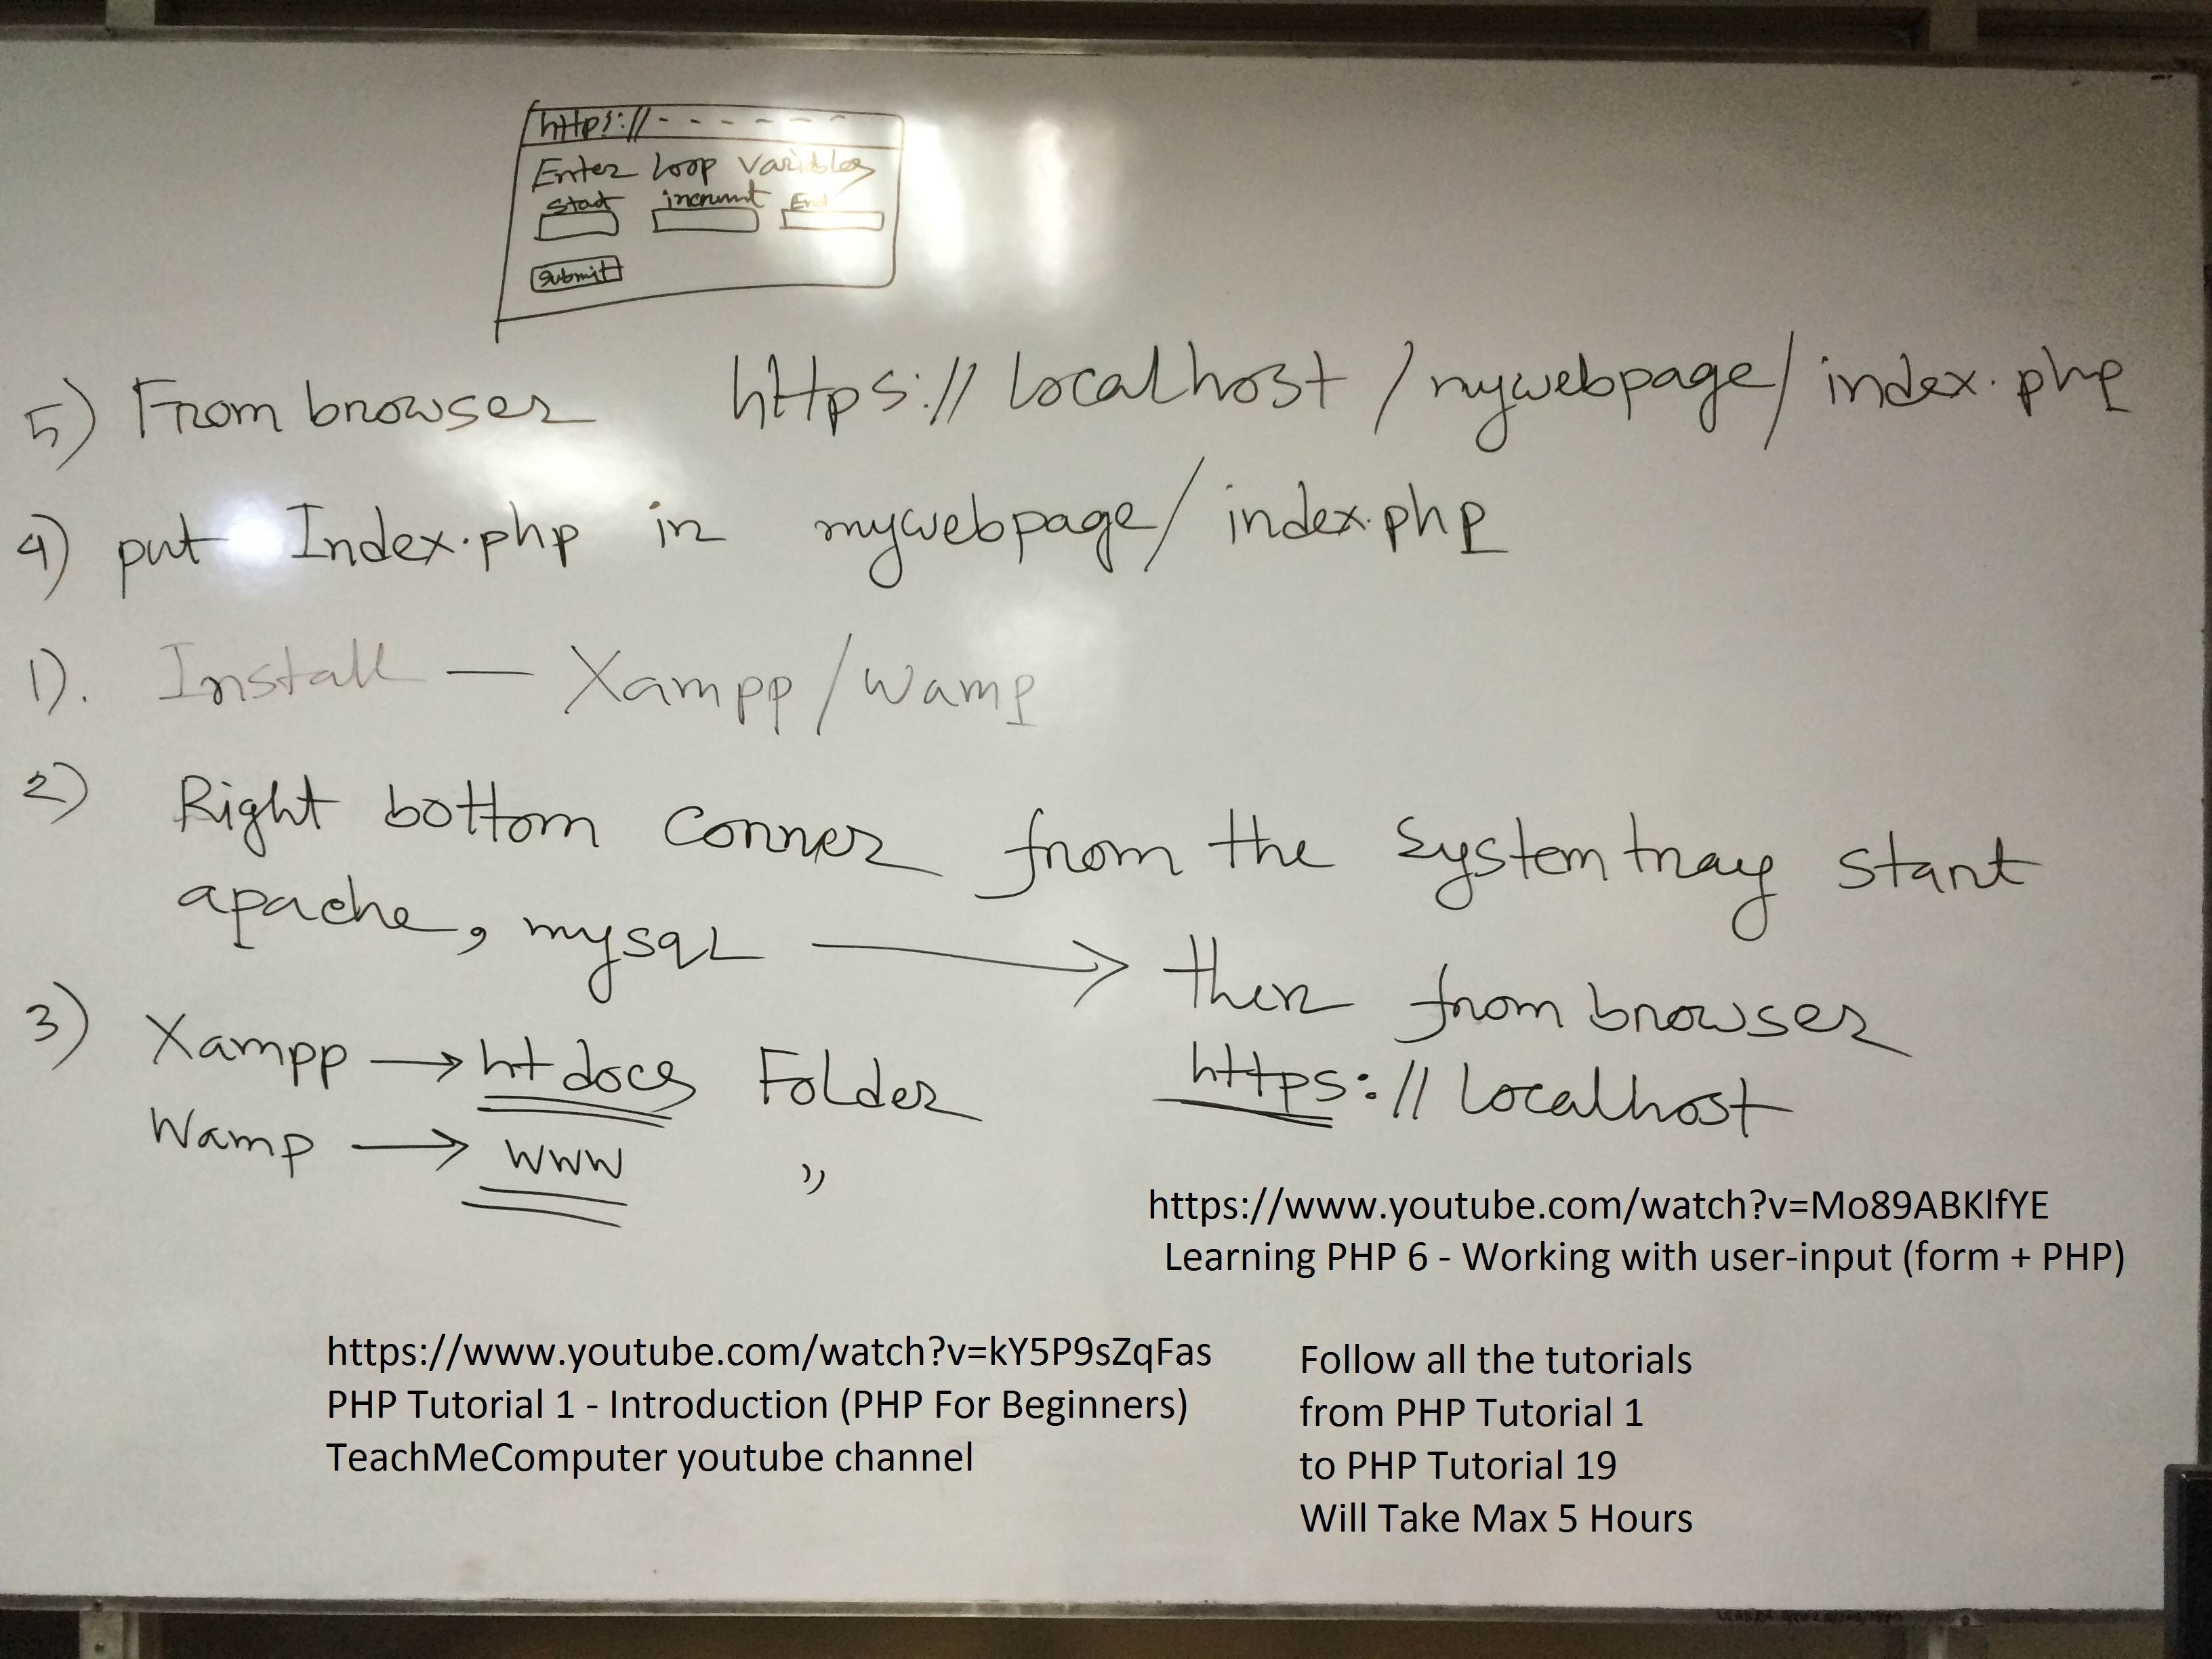 https://------
Enter Loop Variables
Start increment End
Submit
5) From browser https://localhost/mywebpage/index.php
4) put Index.php in mywebpage/index.php
1). Install — Xampp/Wamp
2) Right bottom corner from the system tray start
apache, mysqL → then from browser
https://localhost
3) Xampp → htdocs Folder
Wamp → www "
https://www.youtube.com/watch?v=Mo89ABKlfYE
Learning PHP 6 - Working with user-input (form + PHP)
https://www.youtube.com/watch?v=kY5P9sZqFas
PHP Tutorial 1 - Introduction (PHP For Beginners)
TeachMeComputer youtube channel
Follow all the tutorials
from PHP Tutorial 1
to PHP Tutorial 19
Will Take Max 5 Hours